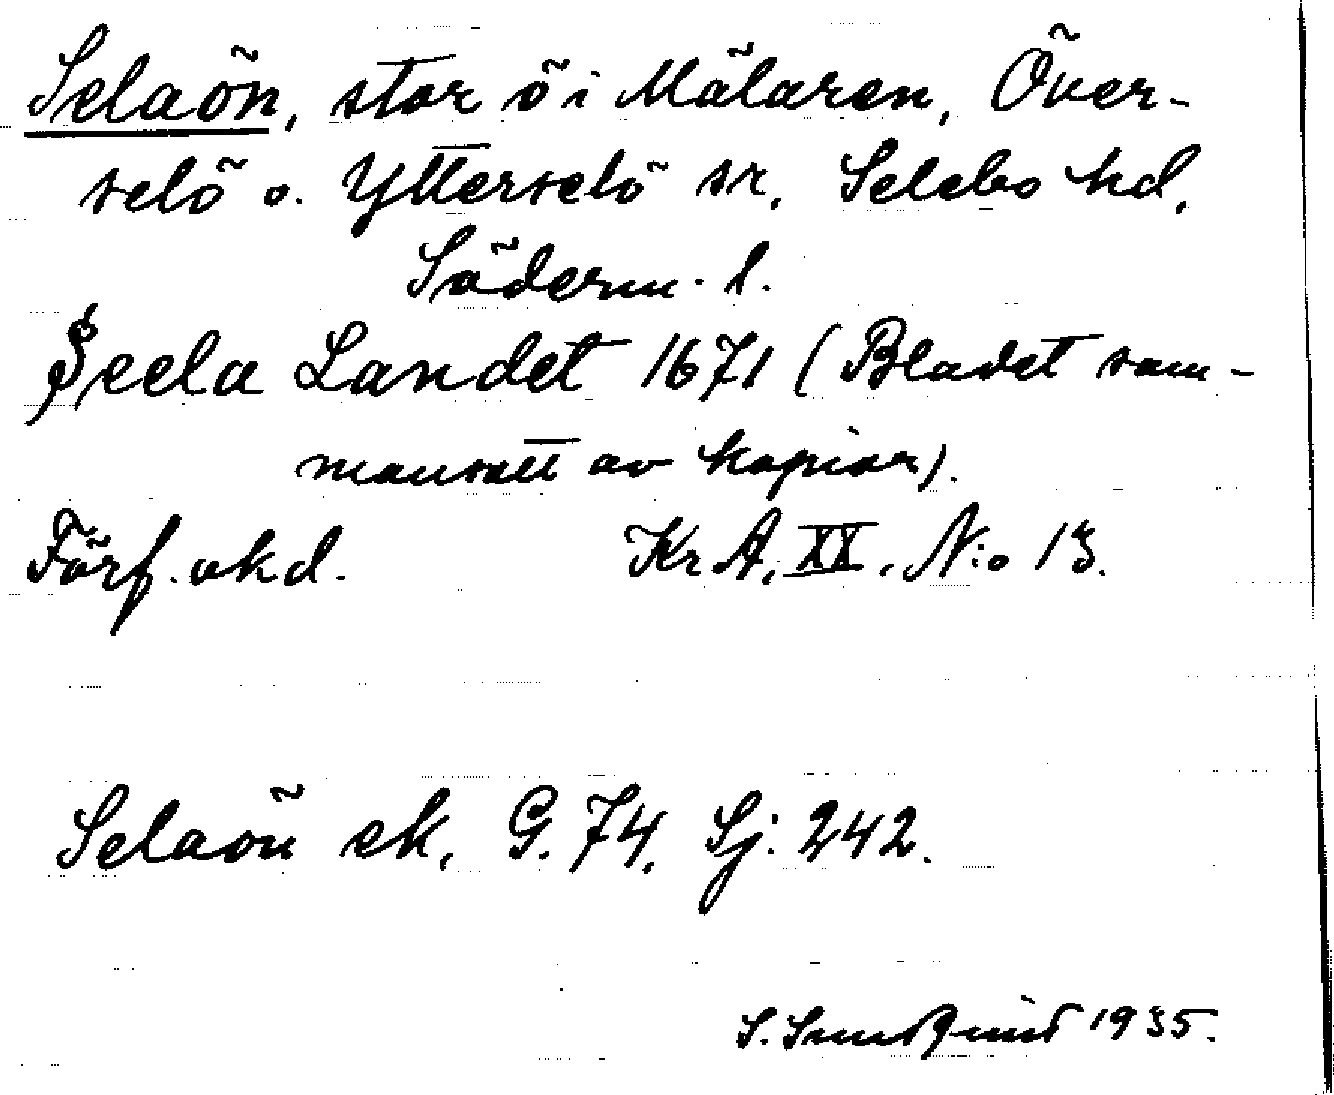 Selaön, stor ö i Mälaren, Över-
selö o. Ytterselö sr, Selebo hd,
Söderm. l.
Seela Landet 1671 (Bladet sam-
mansatt av kopior).
Förf. okd. Kr A, XX, N:o 13.
Selaön ek. G. 74. Sj: 242.
S. Sundqvist 1935.